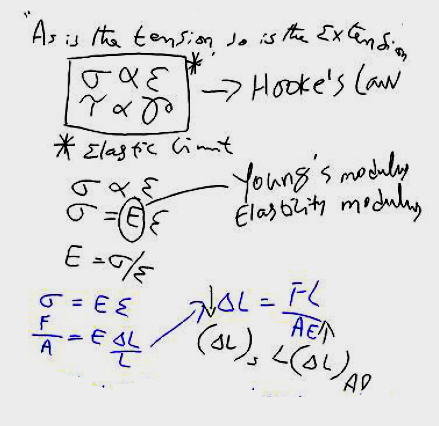 "As is the tension, so is the Extension"
σ ∝ ε *
τ ∝ γ → Hooke's Law
* Elastic limit
σ ∝ ε
σ = E ε
Young's modulus
Elasticity modulus
E = σ/ε
σ = E ε
F/A = E ΔL/L
↓ΔL = FL/AE↑
(ΔL)s < (ΔL)